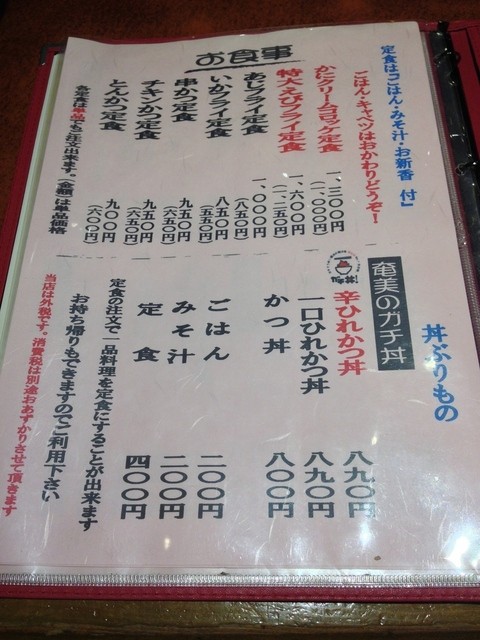 お食事
定食は「ごはん・みそ汁・お新香 付」
ごはん・キャベツはおかわりどうぞ!
かにクリームコロッケ定食 一、三〇〇円 (一、〇〇〇円)
特大えびフライ定食 一、六〇〇円 (一、二五〇円)
あじフライ定食 一、〇〇〇円 (八五〇円)
いかフライ定食 八五〇円 (五五〇円)
串かつ定食 九五〇円 (六五〇円)
チキンかつ定食 九五〇円 (六五〇円)
とんかつ定食 九〇〇円 (六〇〇円)
各定食は単品でもご注文出来ます。(金額)は単品価格
丼ぶりもの
奄美のガチ丼
辛ひれかつ丼 八九〇円
一口ひれかつ丼 八九〇円
かつ丼 八〇〇円
ごはん 二〇〇円
みそ汁 二〇〇円
定食 四〇〇円
定食の注文で一品料理を定食にすることが出来ます
お持ち帰りもできますのでご利用下さい
当店は外税です。消費税は別途おあずかりさせて頂きます